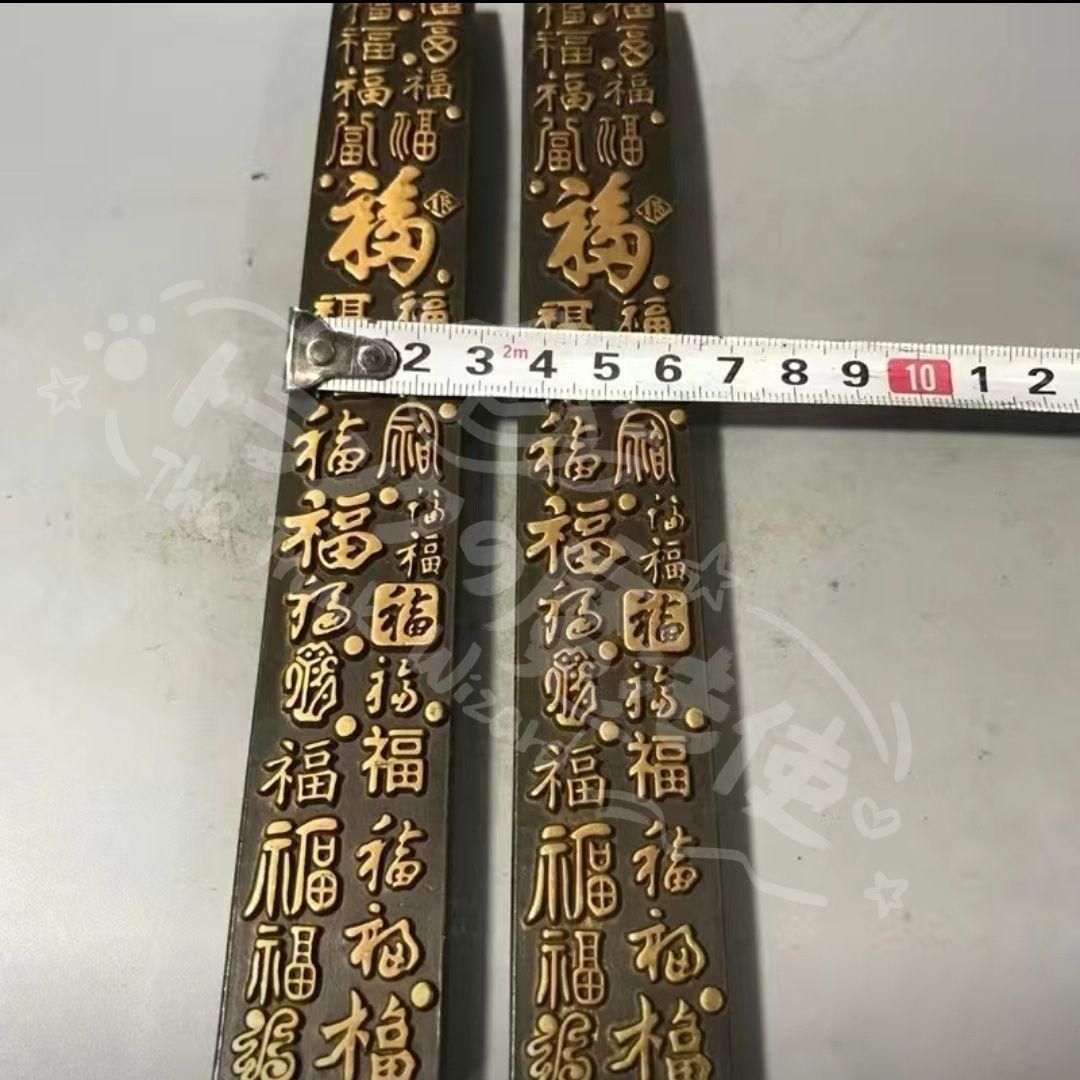 福 福 福 福
福 福 福 福
福 福 福 福
福 福 福 福
福 福
福 福 福 福
2 3 2m 4 5 6 7 8 9 10 1 2
福 福 福 福
福 福 福 福
福 福
福 福 福 福
福 福
福 福 福 福
福 福 福 福
福 福 福 福
福 福 福 福
The
Wizard
使